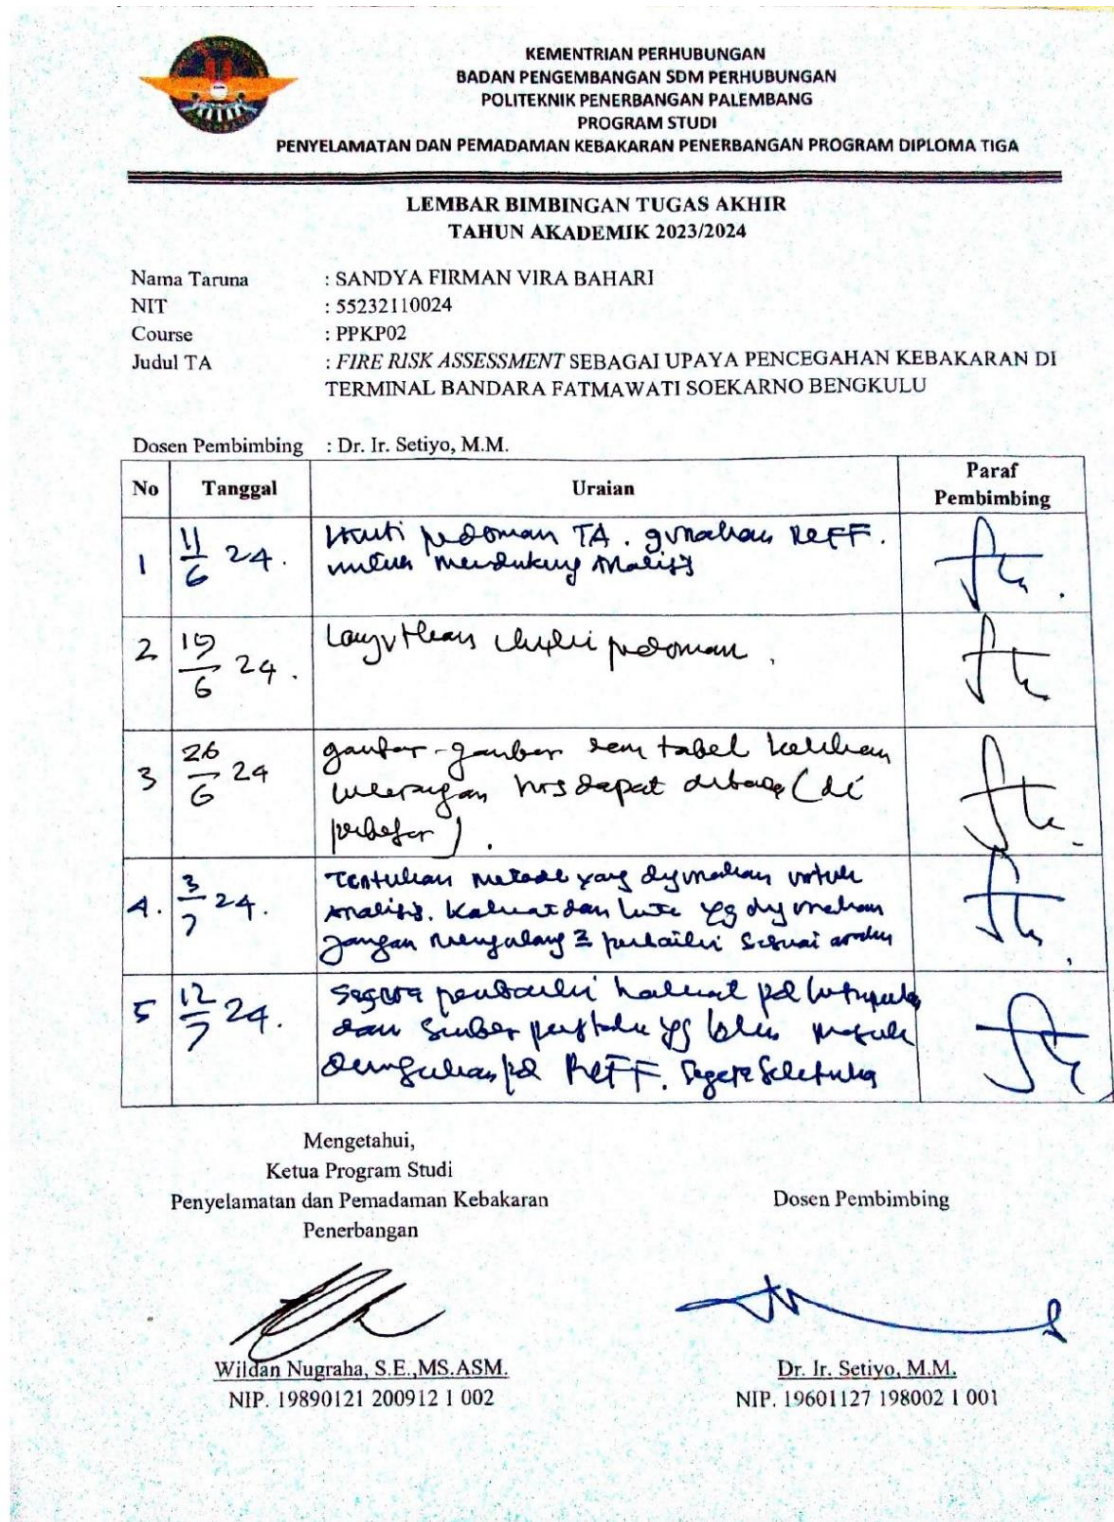 KEMENTRIAN PERHUBUNGAN
BADAN PENGEMBANGAN SDM PERHUBUNGAN
POLITEKNIK PENERBANGAN PALEMBANG
PROGRAM STUDI
PENYELAMATAN DAN PEMADAMAN KEBAKARAN PENERBANGAN PROGRAM DIPLOMA TIGA
LEMBAR BIMBINGAN TUGAS AKHIR
TAHUN AKADEMIK 2023/2024
Nama Taruna : SANDYA FIRMAN VIRA BAHARI
NIT : 55232110024
Course : PPKP02
Judul TA : FIRE RISK ASSESSMENT SEBAGAI UPAYA PENCEGAHAN KEBAKARAN DI
TERMINAL BANDARA FATMAWATI SOEKARNO BENGKULU
Dosen Pembimbing : Dr. Ir. Setiyo, M.M.
No Tanggal Uraian Paraf
Pembimbing
1 11/6 24. Ikuti pedoman TA. gunakan REFF.
untuk mendukung Analisis
2 19/6 24. Lanjutkan pedoman.
3 26/6 24 gambar-gambar dan tabel
hrs dapat dibaca (di
perbesar).
4. 3/7 24. Tentukan metode yang digunakan untuk
Analisis. Kalimat dan kata yg digunakan
jangan mengulang2 perbaiki sesuai
5 12/7 24. Segera perbaiki kalimat pd
dan sumber yg masuk
pd REFF. Segera
Mengetahui,
Ketua Program Studi
Penyelamatan dan Pemadaman Kebakaran
Penerbangan
Dosen Pembimbing
Wildan Nugraha, S.E.,MS.ASM.
NIP. 19890121 200912 1 002
Dr. Ir. Setiyo, M.M.
NIP. 19601127 198002 1 001